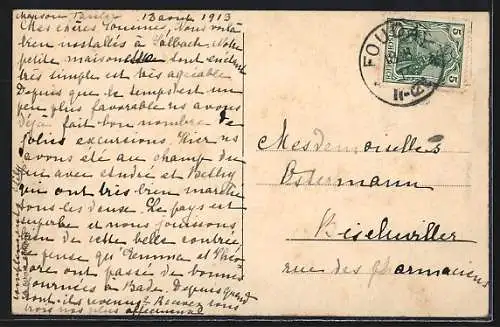 13 août 1913
Mes chères Gemmes, nous voilà
bien installés à Solbach. Notre
petite maison est
très simple et très agréable
Depuis que le temps est un
peu plus favorable ns avons
déjà fait bon nombre de
jolies excursions. Hier ns
avons été au champ du
feu avec André et Nelly
qui ont très bien marché
tous les deux. Le pays est
superbe et nous jouissons
bien de cette belle contrée
Je pense que Gemma et
ont passé de bonnes
journées à Bade. Depuis quand
sont-ils revenus? Recevez tous
nos plus affectueux
compliments
FOUDAY
5
5
Mesdemoiselles
Ostermann
Bischwiller
rue des pharmaciens